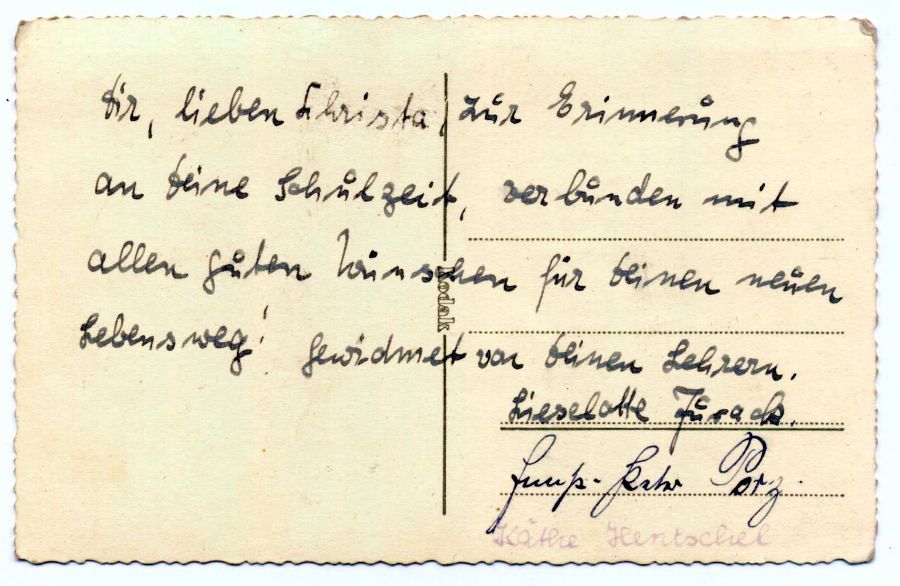 Dir, lieben Christa, zur Erinnerung
an Deine Schulzeit, verbunden mit
allen guten Wünschen für Deinen neuen
Lebensweg! Gewidmet von Deinen Lehrern.
Lieselotte Jurack.
Porz
Käthe Hentschel
Kodak